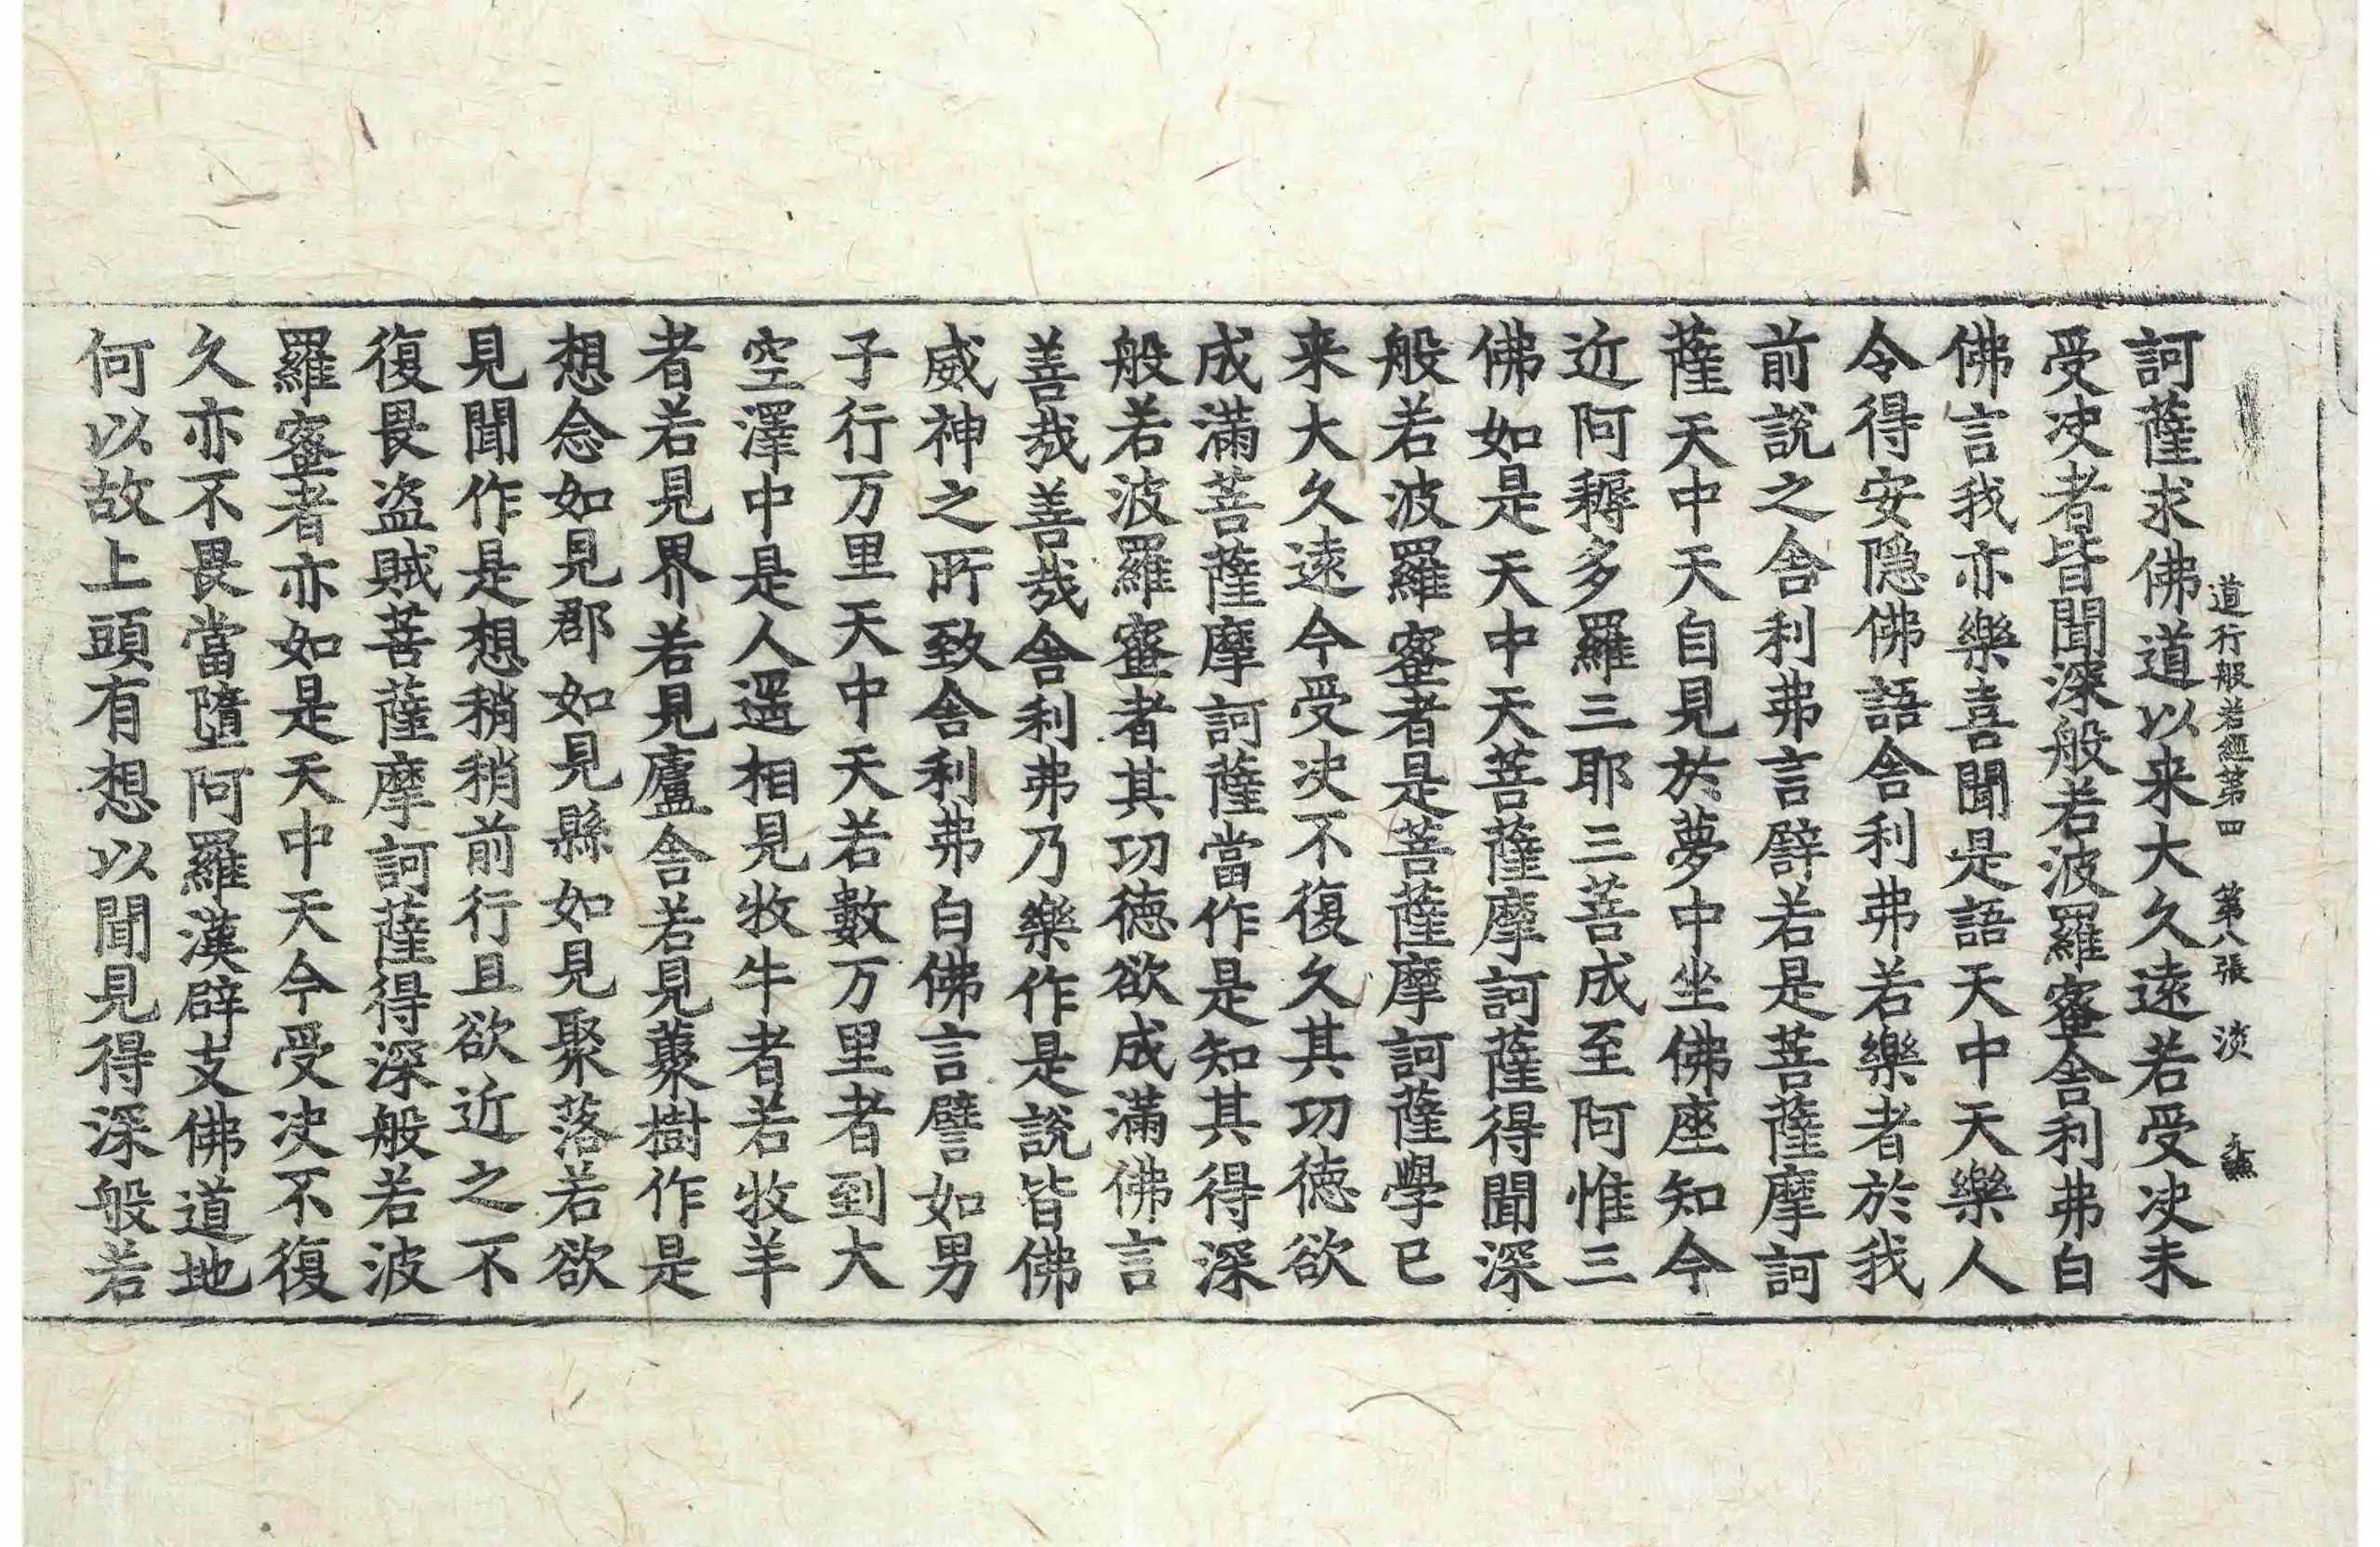 道行般若經第四　第八張　淡
訶薩求佛道以来大久遠若受決未
受決者皆聞深般若波羅蜜舎利弗白
佛言我亦樂喜聞是語天中天樂人
令得安隠佛語舎利弗若樂者於我
前説之舎利弗言辟若是菩薩摩訶
薩天中天自見於夢中坐佛座知今
近阿耨多羅三耶三菩成至阿惟三
佛如是天中天菩薩摩訶薩得聞深
般若波羅蜜者是菩薩摩訶薩學已
来大久遠今受決不復久其功徳欲
成滿菩薩摩訶薩當作是知其得深
般若波羅蜜者其功徳欲成滿佛言
善哉善哉舎利弗乃樂作是説皆佛
威神之所致舎利弗白佛言譬如男
子行万里天中天若數万里者到大
空澤中是人遥相見牧牛者若牧羊
者若見界若見廬舎若見藂樹作是
想念如見郡如見縣如見聚落若欲
見聞作是想稍稍前行且欲近之不
復畏盗賊菩薩摩訶薩得深般若波
羅蜜者亦如是天中天今受決不復
久亦不畏當墮阿羅漢辟支佛道地
何以故上頭有想以聞見得深般若